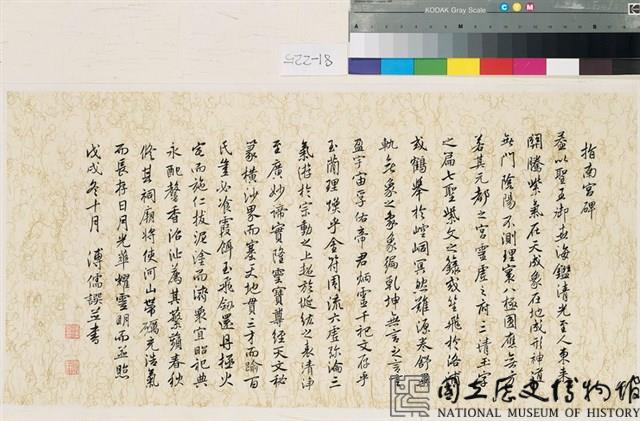 KODAK Gray Scale
C Y M
A
M
B
522-18
指南宮碑
蓋以聖王御世海鑑清光至人東來
關騰紫氣在天成象在地成形神道
無門陰陽不測理寰八極國應
若其元都之宮靈虛之府三清玉字
之扁七聖紫文之籙或笙飛於洛浦
或鶴舉於崆峒冥然難源卷舒無
軌無象之象象徧乾坤無言之言言
盈宇宙孚佑帝君炳靈千祀文存乎
玉簡理煥乎金符周流六虛弥淪三
氣游於宗動之上超於埏紘之表清沖
至廣妙諦寶隆靈寶尊經天文秘
篆橫沙界而塞天地貫三才而踰百
氏豈必准霞餌玉飛劍還丹極火
宅而施仁拔泥塗而濟眾宜昭記典
永配馨香沼沚薦其蘩蘋春秋
脩其祠廟將使河山帶礪元浩氣
而長存日月光華耀靈明而並照
戊戌冬十月 溥儒譔並書
國立歷史博物館
NATIONAL MUSEUM OF HISTORY